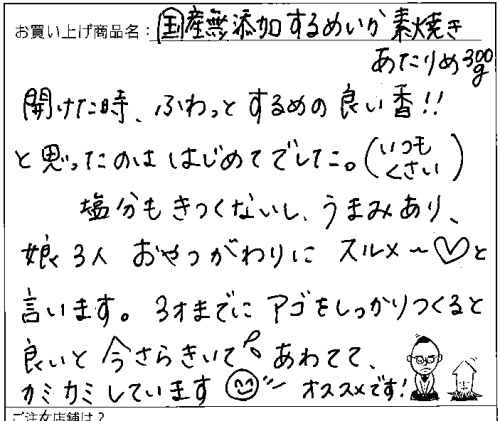 お買い上げ商品名：国産無添加するめいか素焼き
あたりめ300g
開けた時、ふわっとするめの良い香!!
と思ったのははじめてでした。(いつもくさい)
塩分もきつくないし、うまみあり、
娘3人おやつがわりにスルメ〜♡と
言います。3才までにアゴをしっかりつくると
良いと今さらきいて、あわてて、
カミカミしています オススメです!
ご注文店舗は？